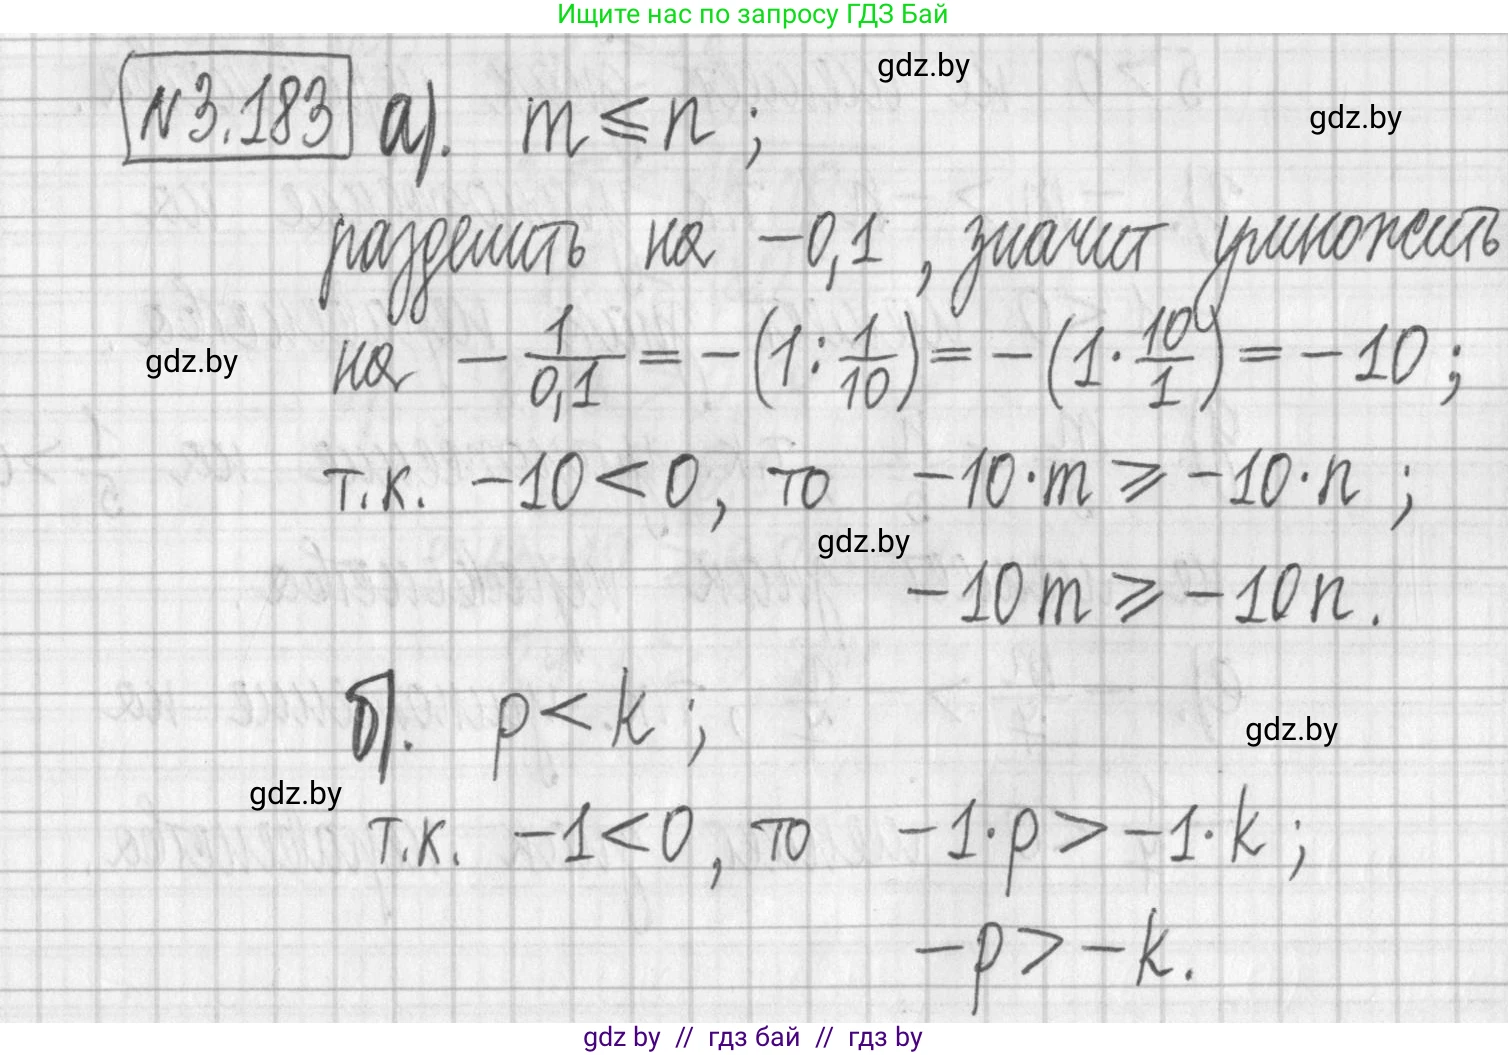 Ищите нас по запросу ГДЗ Бай
gdz.by
№3.183 а). m ⩽ n ;
gdz.by
разделить на −0,1 , значит умножить
gdz.by на − 1/0,1 = −(1 : 1/10) = −(1 · 10/1) = −10 ;
т.к. −10 < 0, то −10·m ⩾ −10·n ;
gdz.by
−10m ⩾ −10n.
б). p < k ;
gdz.by
gdz.by
т.к. −1 < 0, то −1·p > −1·k ;
−p > −k.
gdz by // гдз бай // гдз by